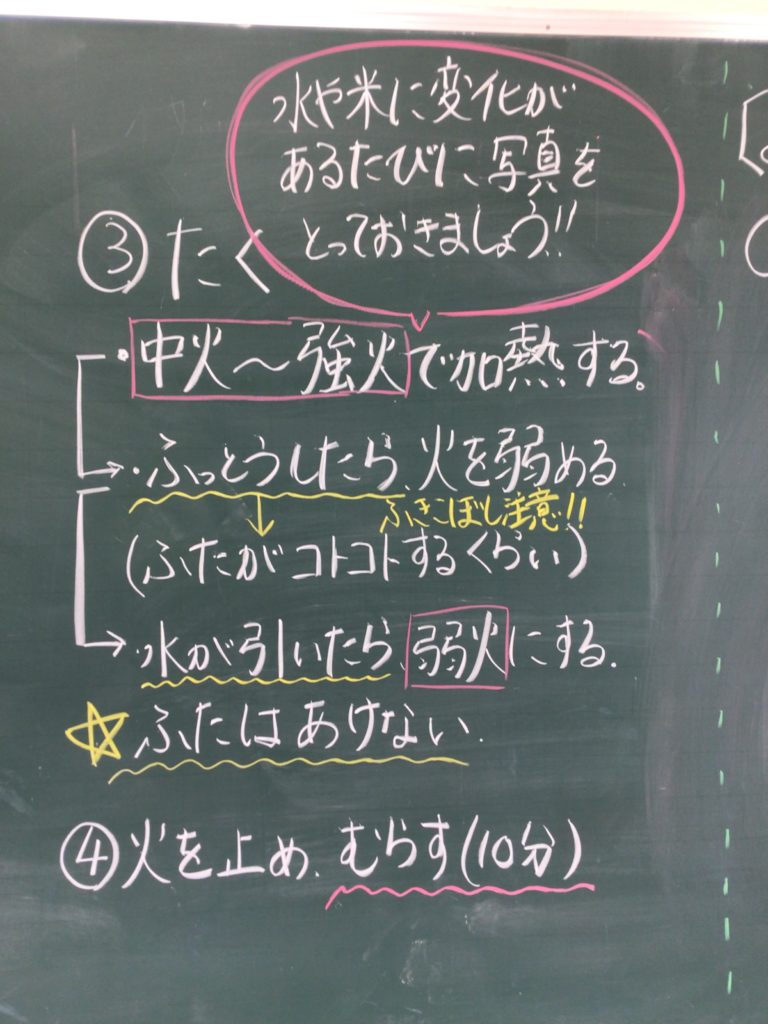 水や米に変化が
あるたびに写真を
とっておきましょう!!
③たく
・中火～強火で加熱する。
・ふっとうしたら、火を弱める
ふきこぼし注意!!
(ふたがコトコトするくらい)
・水が引いたら、弱火にする.
☆ふたはあけない.
④火を止め、むらす(10分)